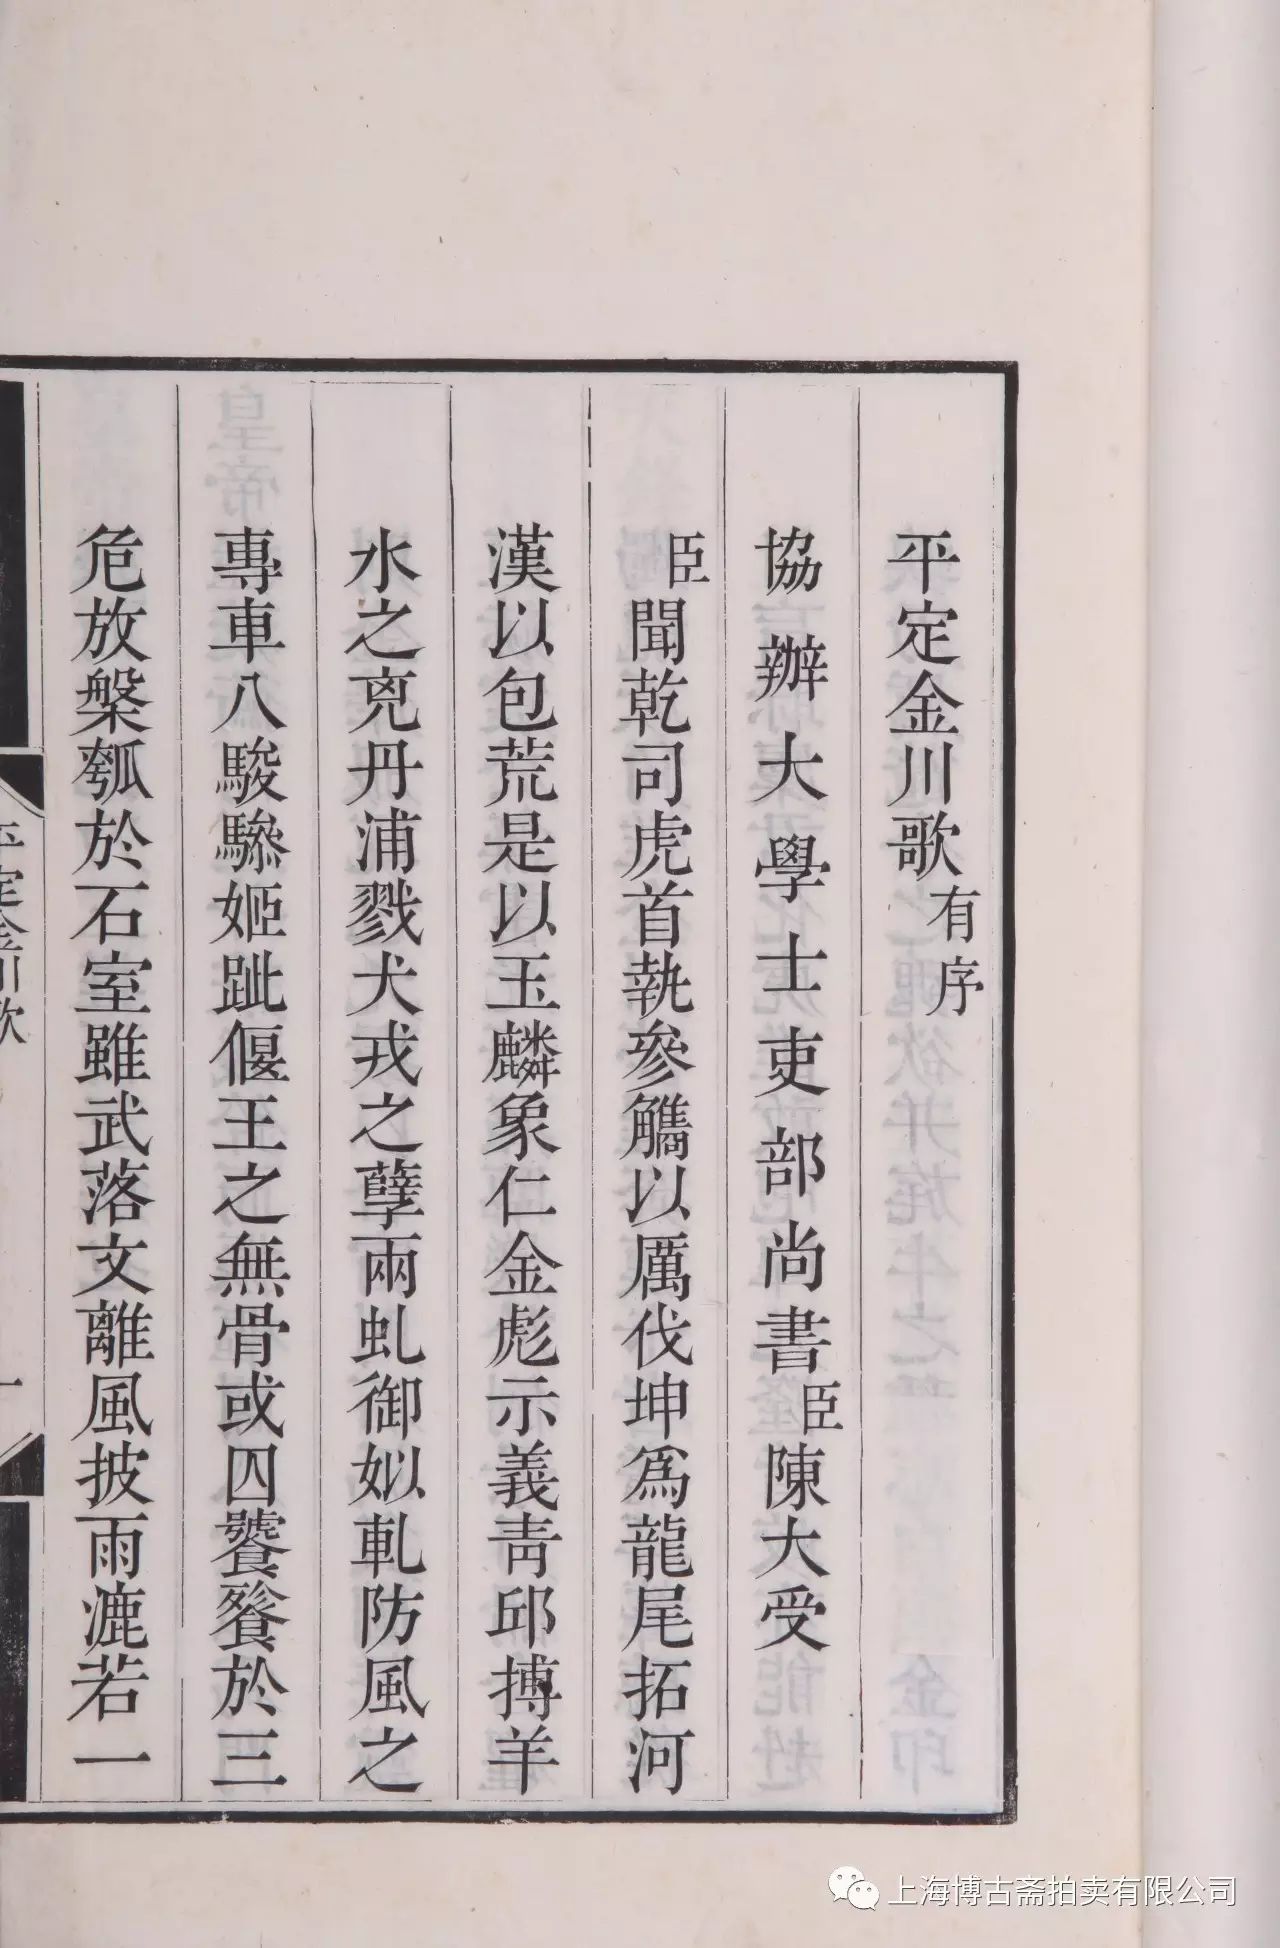 平定金川歌有序
協辦大學士吏部尚書臣陳大受
臣聞乾司虎首執參觿以厲伐坤爲龍尾拓河
漢以包荒是以玉麟象仁金彪示義靑邱搏羊
水之兇丹浦戮犬戎之孽兩虬御姒軋防風之
專車八駿驂姬跐偃王之無骨或四饕餮於三
危放槃瓠於石室雖武落文離風披雨漉若一
平定金川歌
一
上海博古斋拍卖有限公司